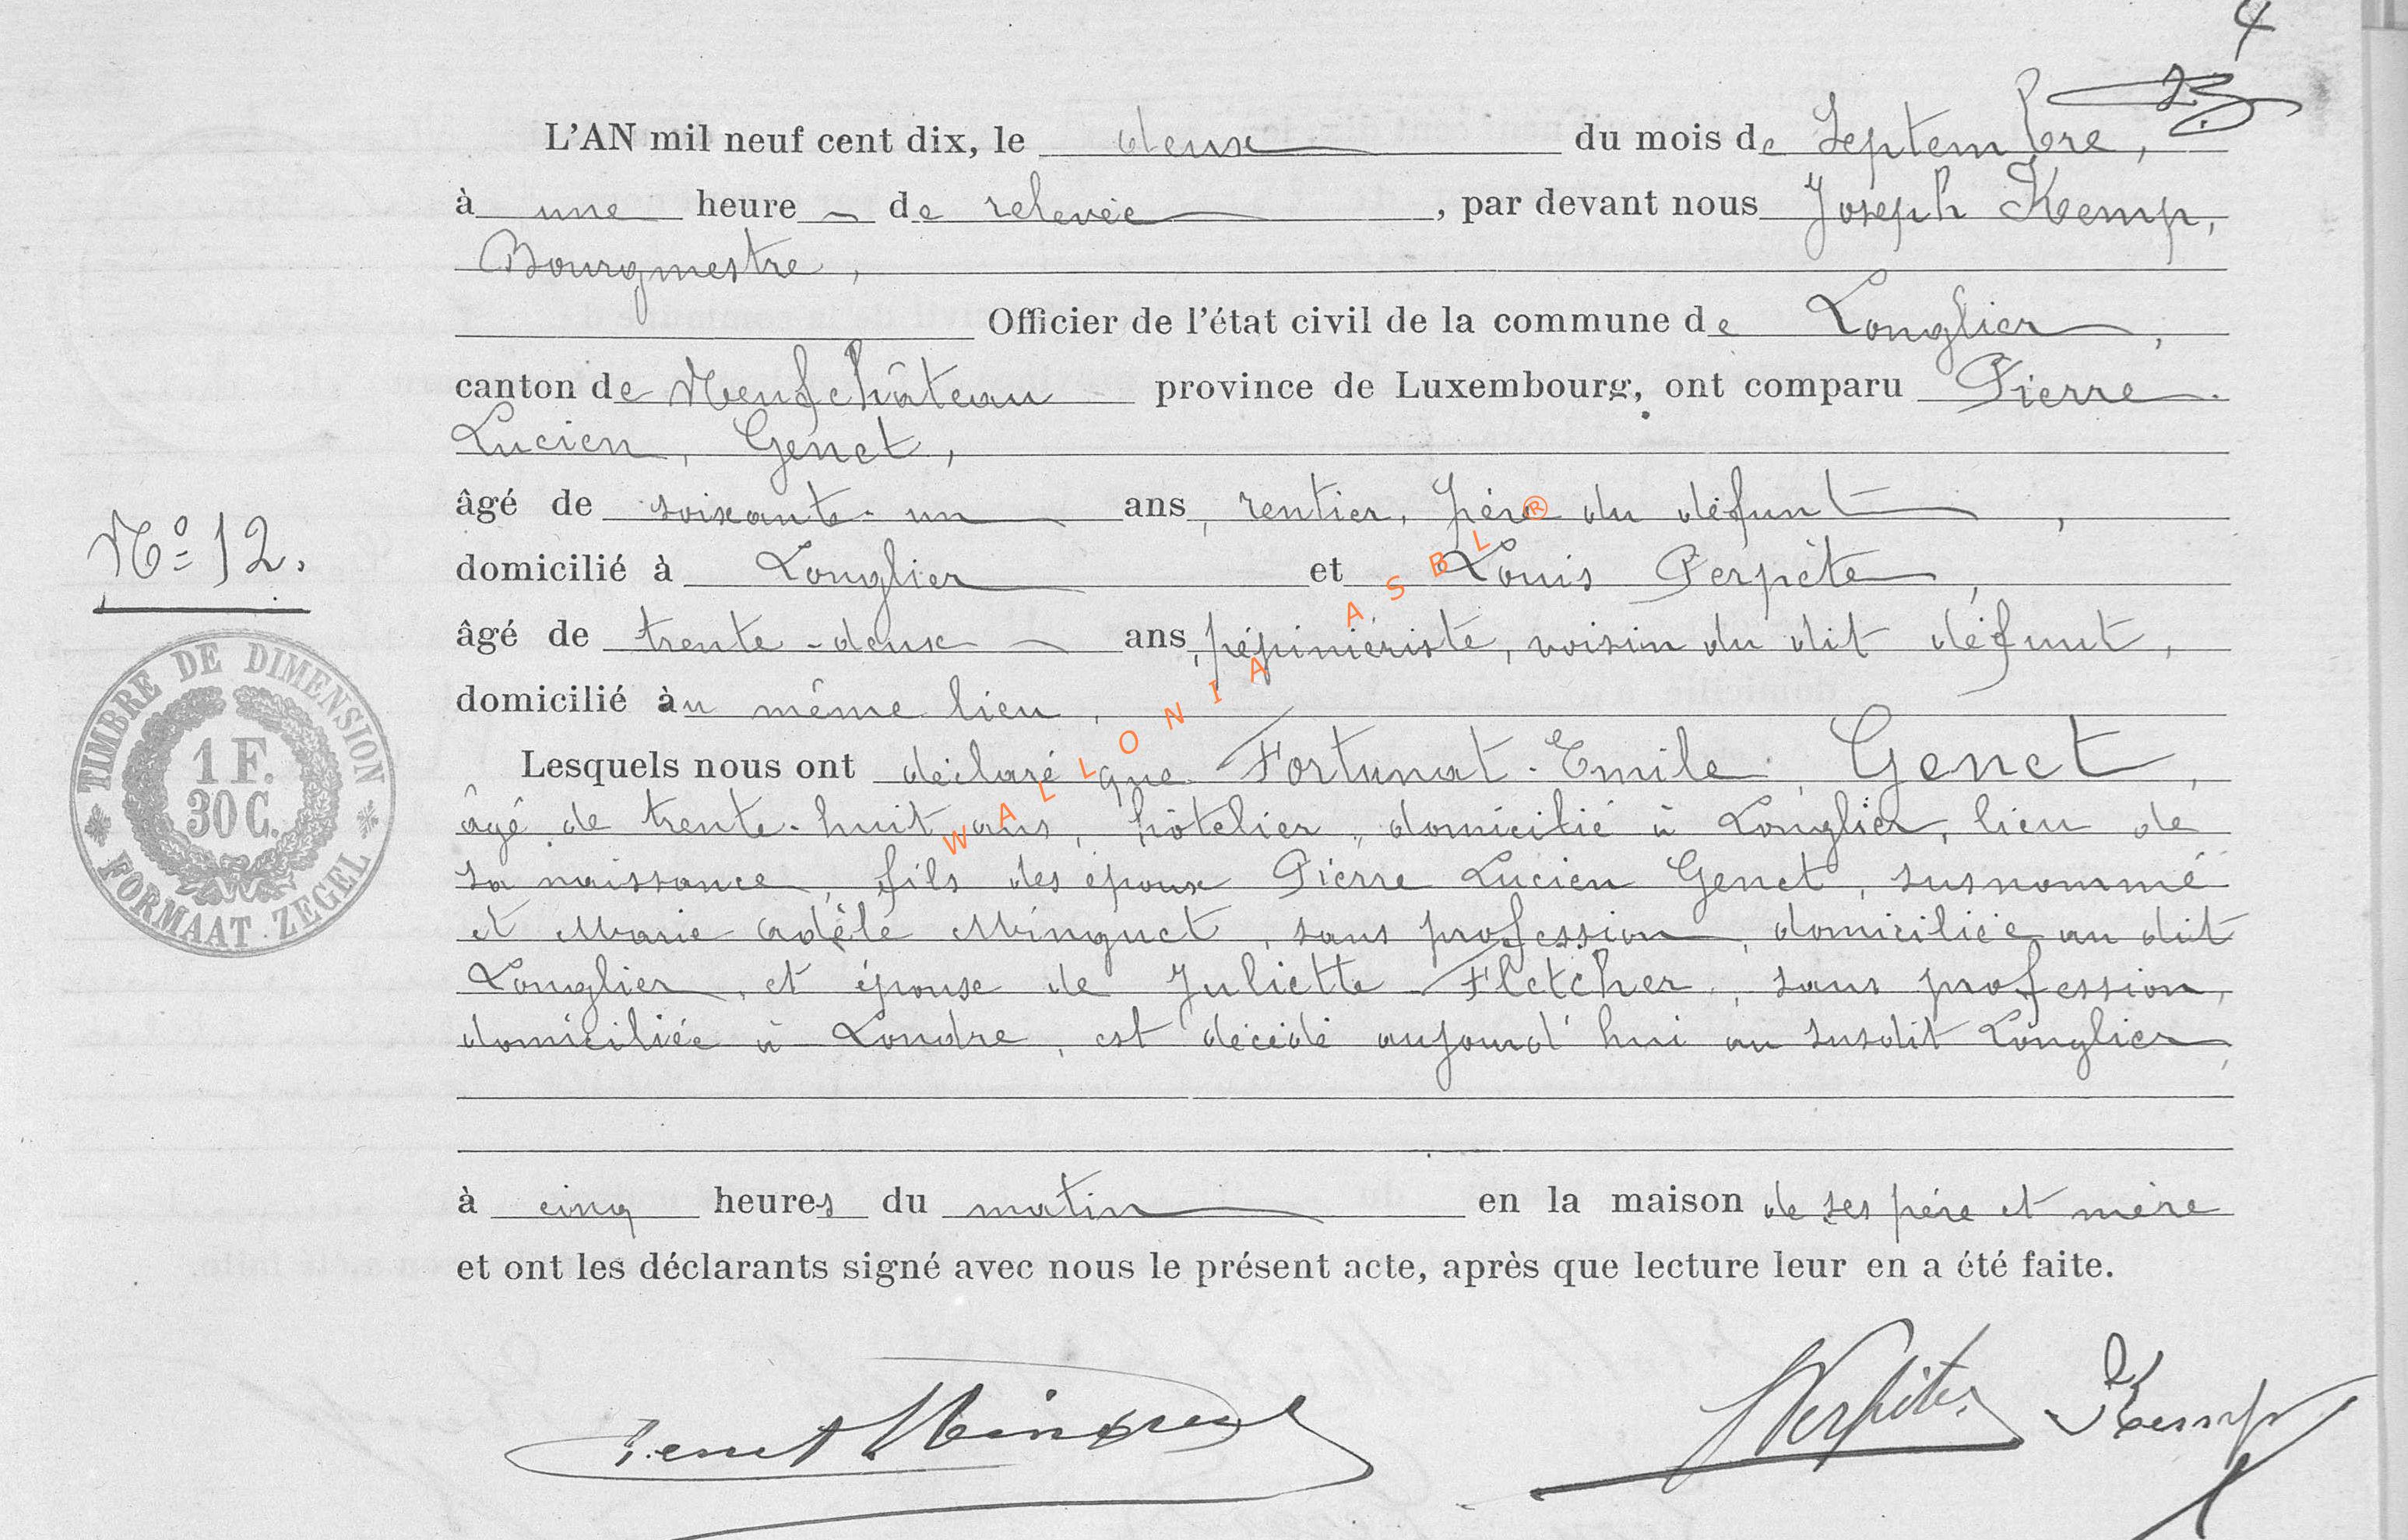 4
L'AN mil neuf cent dix, le deux du mois de Septembre,
à une heure de relevée, par devant nous Joseph Kemp,
Bourgmestre,
Officier de l'état civil de la commune de Longlier,
canton de Neufchâteau province de Luxembourg, ont comparu Pierre
Lucien, Genet,
âgé de soixante-un ans, rentier, père du défunt,
N° 12.
domicilié à Longlier et Louis Perpète,
âgé de trente-deux ans, pépiniériste, voisin du dit défunt,
domicilié au même lieu.
Lesquels nous ont déclaré que Fortunat-Emile, Genet,
âgé de trente-huit ans, hôtelier, domicilié à Longlier, lieu de
sa naissance, fils des époux Pierre Lucien Genet, susnommé
et Marie Adèle Minguet, sans profession, domiciliée au dit
Longlier, et épouse de Juliette Fletcher, sans profession,
domiciliée à Londre, est décédé aujourd'hui au susdit Longlier,
à cinq heures du matin en la maison de ses père et mère
et ont les déclarants signé avec nous le présent acte, après que lecture leur en a été faite.
Genet Minguet
Perpète
Kemp
TIMBRE DE DIMENSION
1 F.
30 C.
FORMAAT ZEGEL
WALLONIA ASBL ®